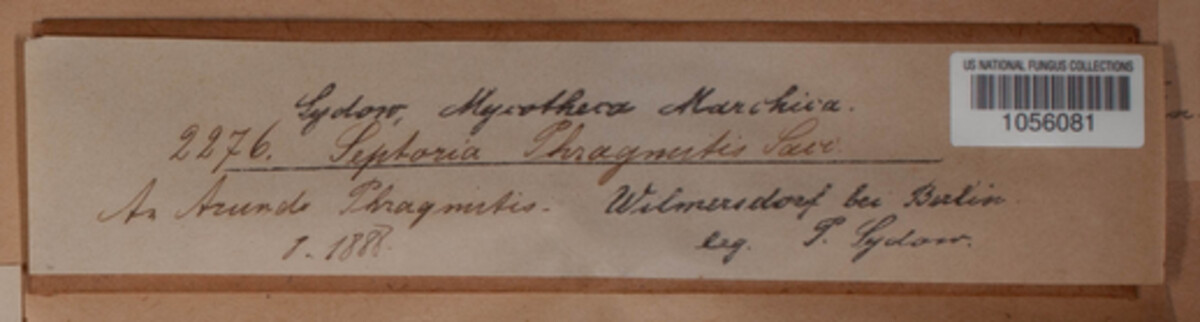 US NATIONAL FUNGUS COLLECTIONS
1056081
Sydow, Mycotheca Marchica.
2276. Septoria Phragmitis Sacc.
An Arundo Phragmitis. Wilmersdorf bei Berlin.
8. 1888. leg. P. Sydow.